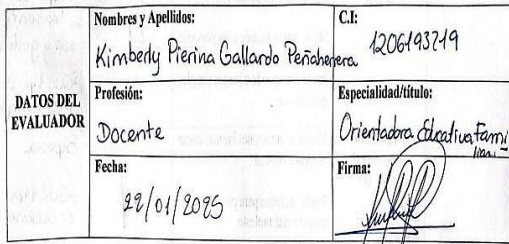 DATOS DEL EVALUADOR
Nombres y Apellidos:
Kimberly Pierina Gallardo Peñaherrera
C.I:
1206193219
Profesión:
Docente
Especialidad/título:
Orientadora Educativa Fami
liar
Fecha:
22/01/2025
Firma: